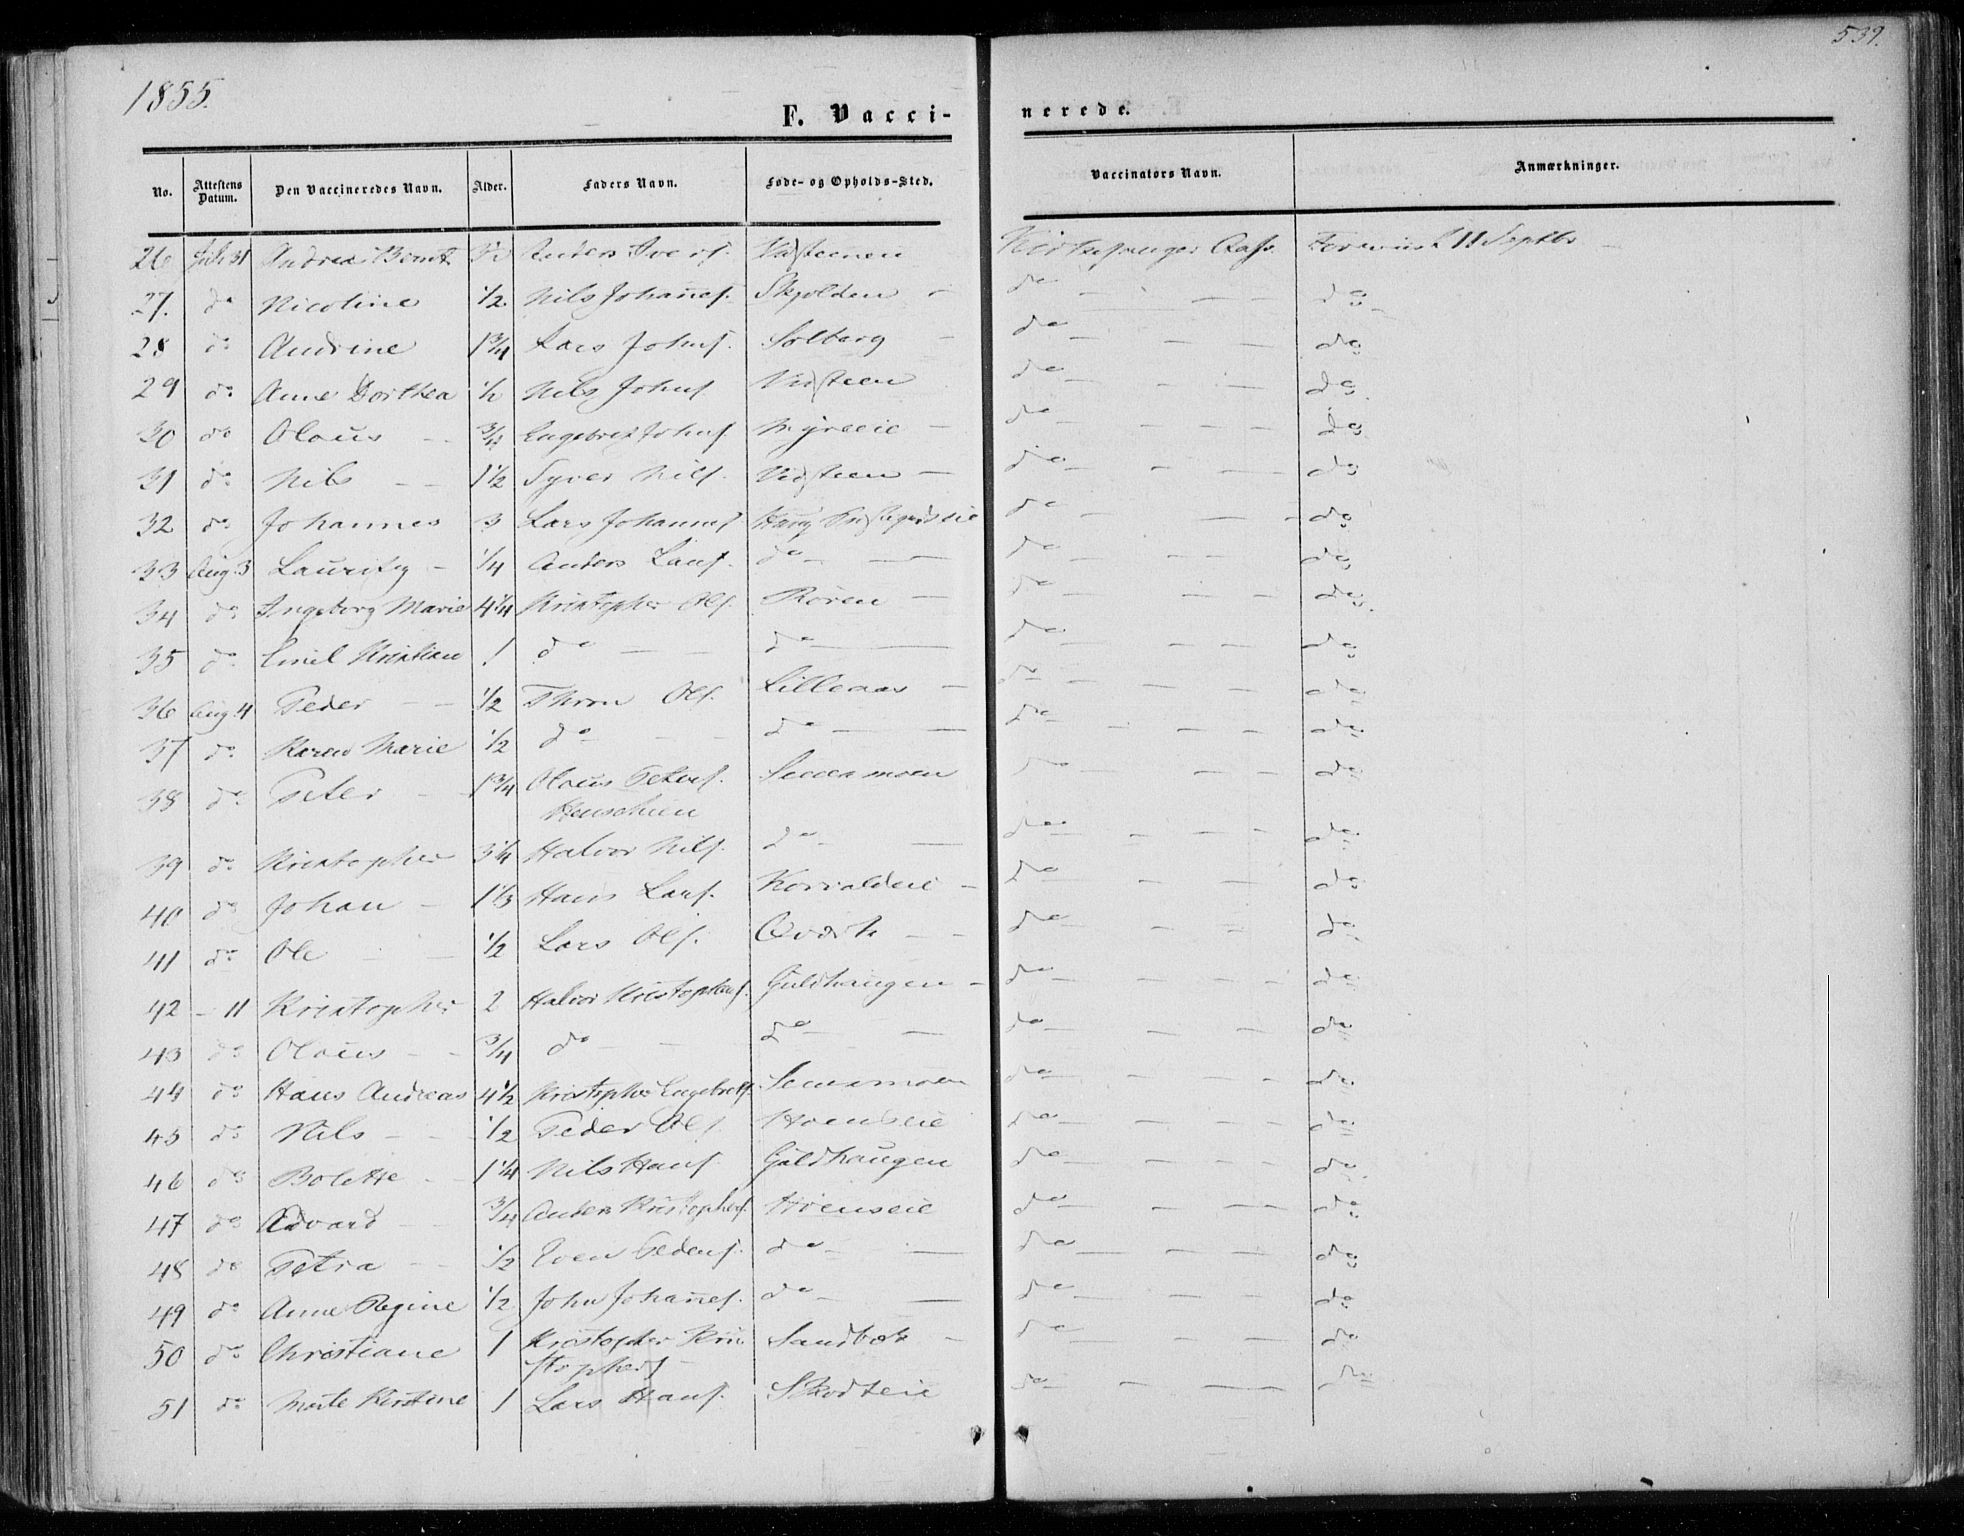 539.
1855.
F. Vacci-
nerede.
No. Attestens Datum. Den Vaccineredes Navn. Alder. Faders Navn. Føde- og Opholds-Sted. Vaccinators Navn. Anmærkninger.
26 Juli 31 Andreas Bernt Anders Ivers. Vidsteenen Kirkesanger Aass. Foreviist 11 Septbr
27. do Nicoline 1/2. Nils Johañes. Skjolden - do - - - do
28 do Andrine 1 3/4 Lars Johns. Solberg - do - - - do
29 do Anne Dorthea 1/2 Nils Johns Vidsteen do - - - do
30 do Olaus - 3/4 Engebret Johns. Myreeie - do - - - do
31 do Nils - - 1 1/2 Syver Nils. Vidsteen - do - - - do
32 do Johannes 3 Lars Johannes Haug do - - - do
33 Aug. 3 Lauritz - 1/4 Anders Lars. do - - do - - - do
34 do Ingeborg Marie 4 1/4 Kristopher Ols. Roren - do - - - do
35 do Emil Kristian 1 do - - do - - do - - - do
36 Aug. 4 Peder - - 1/2 Thron Ols. Lilleaas - do - - - do
37 do Karen Marie 1/2 do - - do - - do - - - do
38 do Peter - 1 3/4 Olaus Peters.
Henschien moen do - - do
39 do Kristopher 3 1/4 Halvor Nils. do - - do - - - do
40 do Johan - 1 1/3 Hans Lars. Korvaldeie - do - - - do
41 do Ole - - 1/2 Lars Ols. Qværk - - do - - - do
42 - 11 Kristopher 2 Halvor Kristophers. Guldhaugen - do - - - do
43 do Olaus - - 3/4 do - - do - - do - - - do
44 do Hans Andreas 4 1/2 Kristopher Engebrets. moen do - - - do
45 do Nils - - 1/2 Peder Ols. Hoenseie do - - - do
46 do Bolette - 1 1/4 Nils Hans. Guldhaugen do - - - do
47 do Edvard - 3/4 Anders Kristophers. Hoenseie do - - - do
48 do Petra - - 1/2 Even Peders. do - - do - - - do
49 do Anne Regine 1/2 John Johañes. do - - do - - - do
50 do Christiane 1 Kristopher Kri
stophers - Sandbæk - do - - - do
51 do Marte Kirstine 1 Lars Hans. Skodteie do - - - do